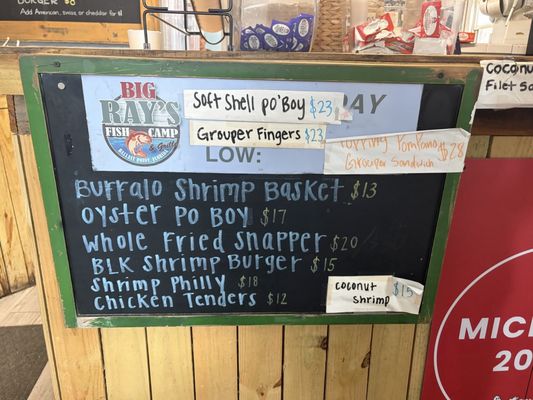 BURGER $8
Add American, swiss, or cheddar for $1
BIG
RAY'S
FISH CAMP
& Grill
Soft Shell Po'Boy $23
AY
Grouper Fingers $23
LOW:
Pompano
Grouper Sandwich $28
Buffalo Shrimp Basket $13
Oyster Po Boy $17
Whole Fried Snapper $20
BLK Shrimp Burger $15
Shrimp Philly $18
Chicken Tenders $12
coconut
shrimp $15
Coconu
Filet Sa
MIC
20